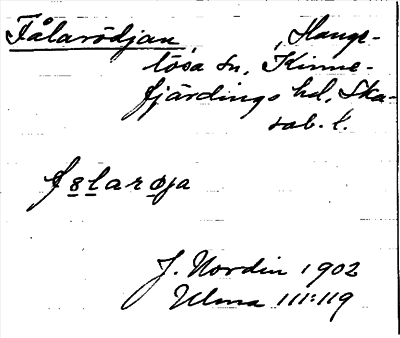 Fålarödjan, Hange-
lösa sn, Kinne-
fjärdings hd, Ska-
rab. l.
fålarøja
J. Nordin 1902
Ulma 111:119